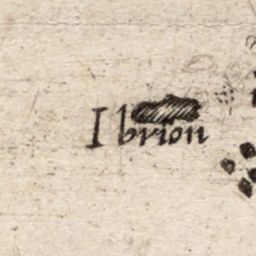 I brion